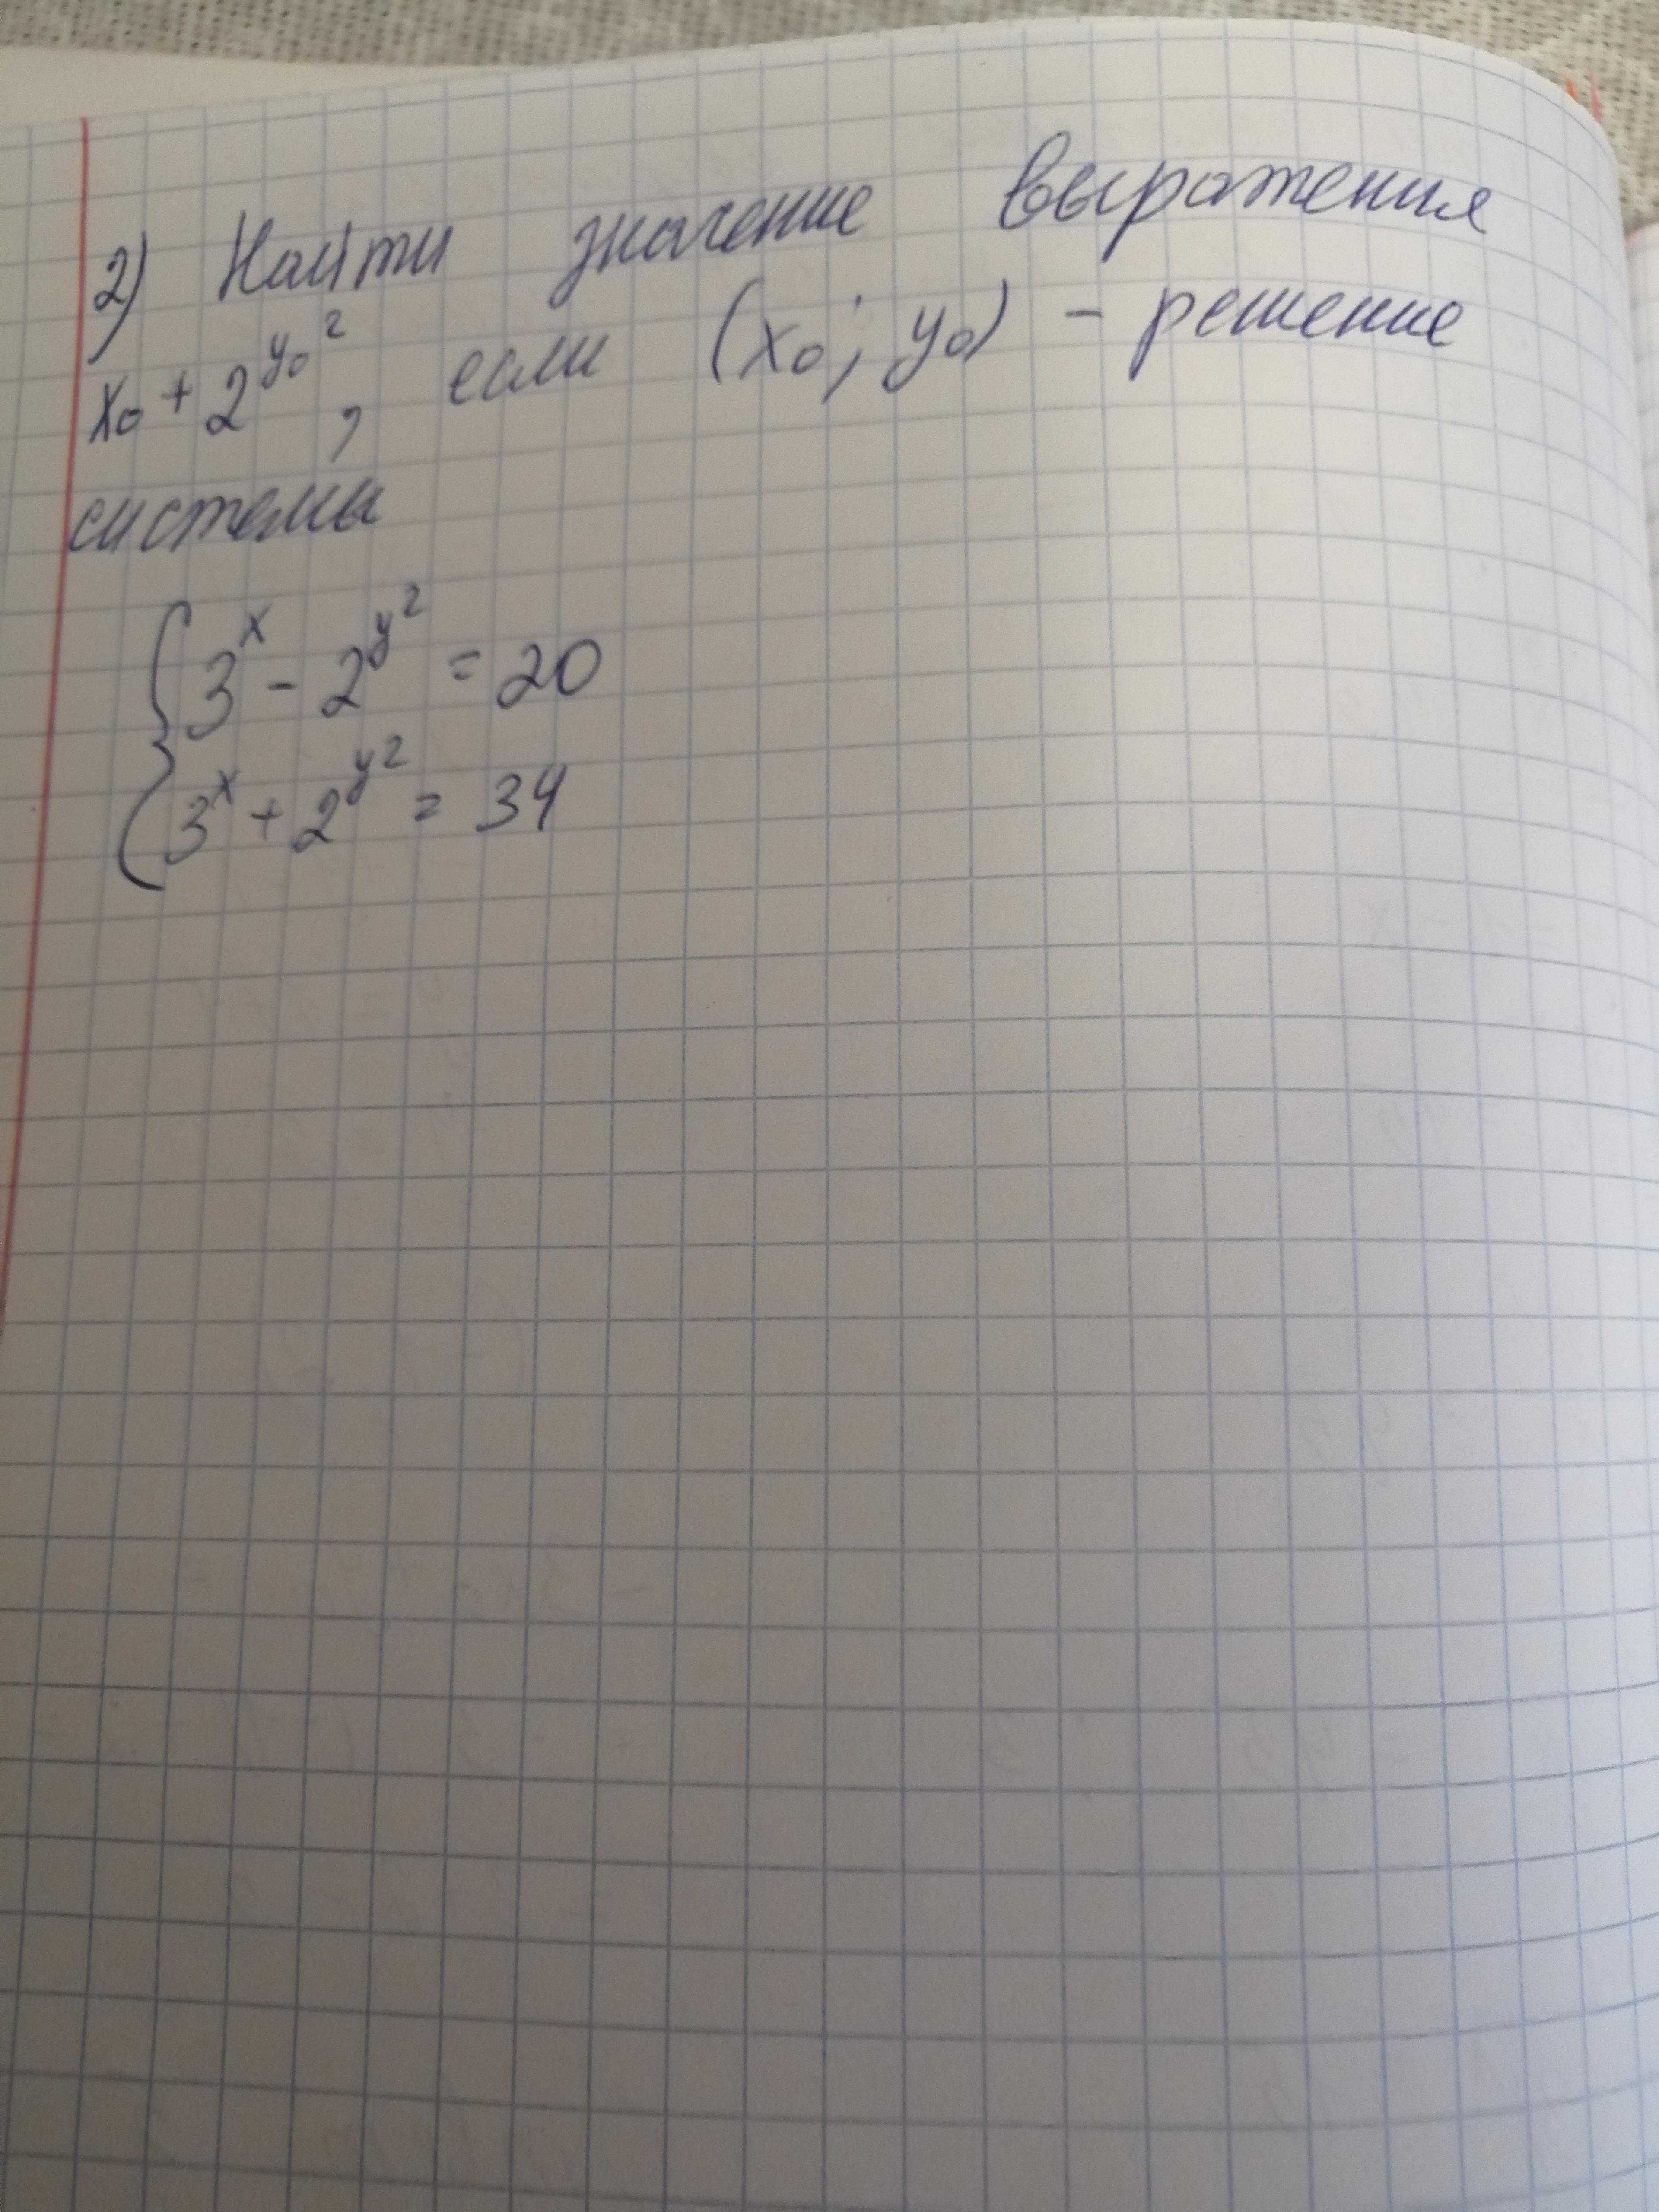 2) Найти значение выражения
x₀ + 2^y₀², если (x₀; y₀) - решение
системы
{ 3^x - 2^y² = 20
3^x + 2^y² = 34